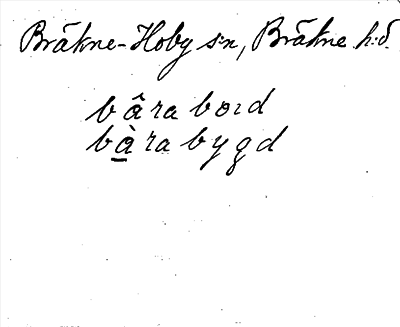 Bräkne-Hoby s:n, Bräkne h:d.
bâra boıd
bà̲ra bygd